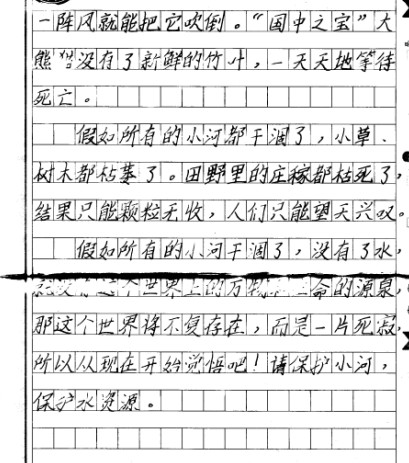 一阵风就能把它吹倒。“国中之宝”大
熊猫没有了新鲜的竹叶，一天天地等待
死亡。
假如所有的小河都干涸了，小草、
树木都枯萎了。田野里的庄稼都枯死了，
结果只能颗粒无收，人们只能望天兴叹。
假如所有的小河干涸了，没有了水，
个世界上的万物 命的源泉，
那这个世界将不复存在，而是一片死寂，
所以从现在开始觉悟吧！请保护小河，
保护水资源。